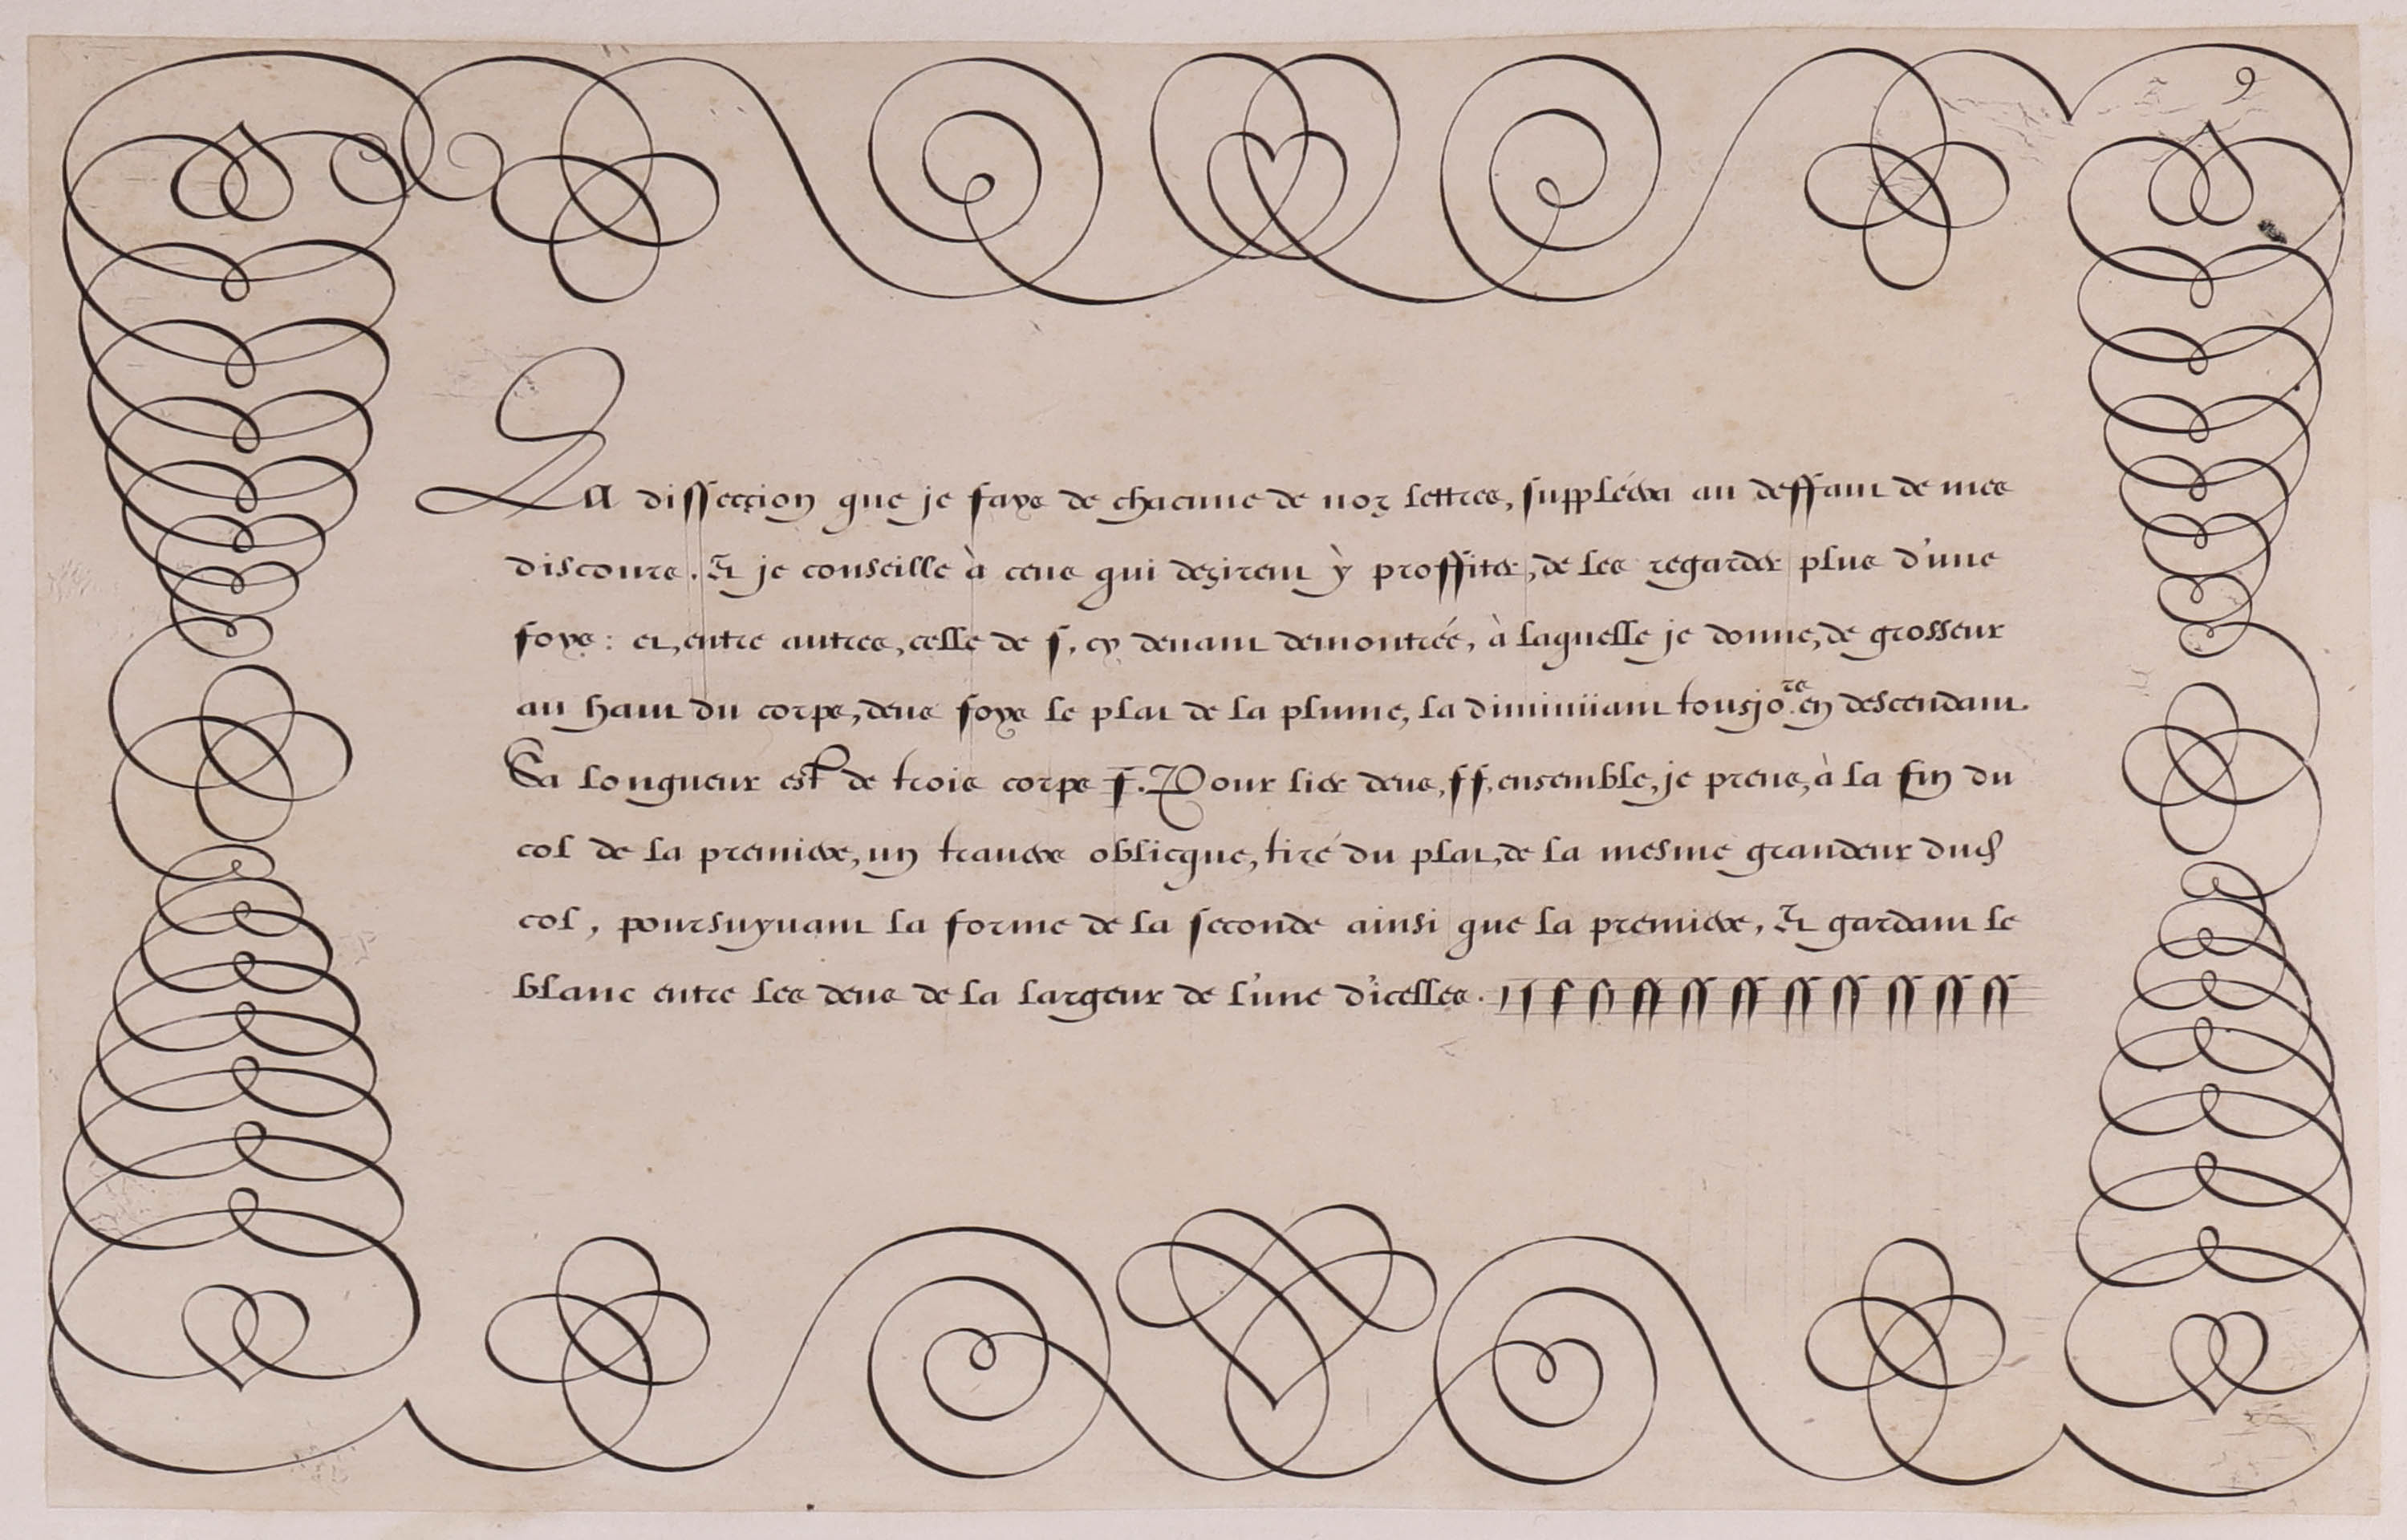 9
La dissecçion que je fays de chacune de noz lettres, suppléera au deffaut de mes
discours. Et je conseille à ceus qui dezirent ÿ proffiter, de les regarder plus d'une
foys : et, entre autres, celle de ſ, cy devant demontrée, à laquelle je donne, de grosseur
au haut du corps, deus foys le plat de la plume, la diminüant tousjo.rs en descendant.
Sa longueur est de trois corps Pour lier deus, ſſ, ensemble, je prens, à la fin du
col de la premiere, un travers oblicque, tiré du plat, de la mesme grandeur dud
col, poursuyvant la forme de la seconde ainsi que la premiere, Et gardant le
blanc entre les deus de la largeur de l'une d'icelles.